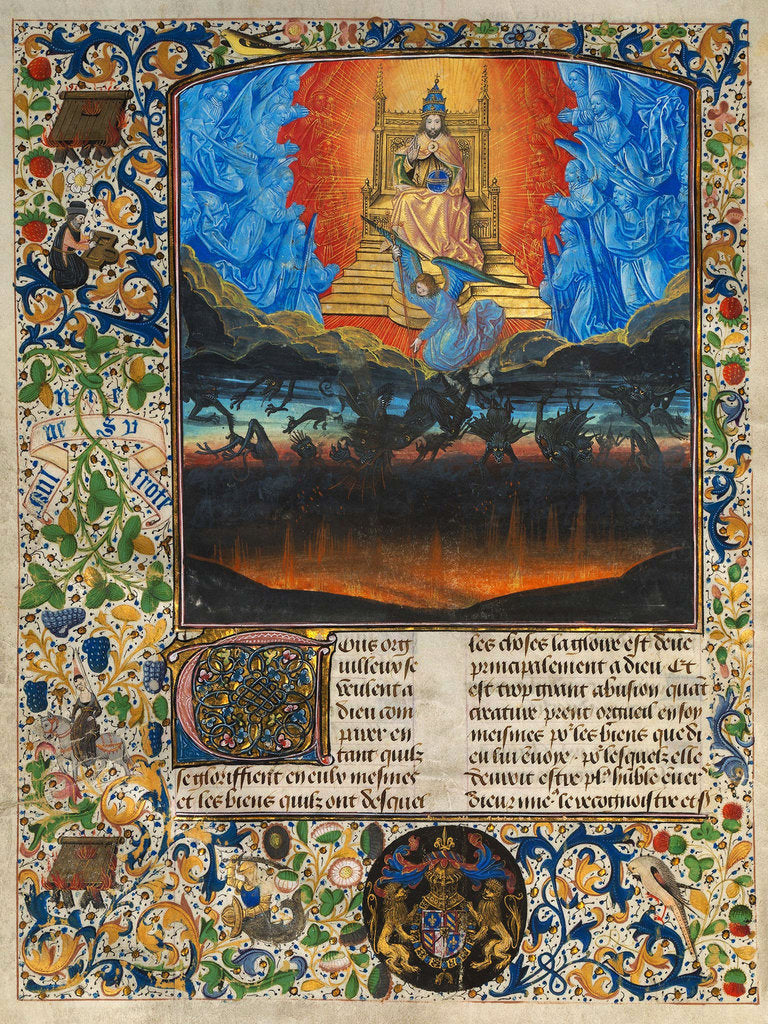 nie
ne sy
nul frote
Tous org
uilleux se
veulent a
dieu com
parer en
tant quilz
se gloriffient en eulx mesmes
et les biens quilz ont desquel
les choses la gloire est deue
principalement a dieu Et
est trop grant abusion quāt
creature prent orgueil en soy
meismes poʳ les biens que di
eu lui envoye . poʳ lesquelz elle
devroit estre plꝰ hūble ēver
dieu le recognoistre et